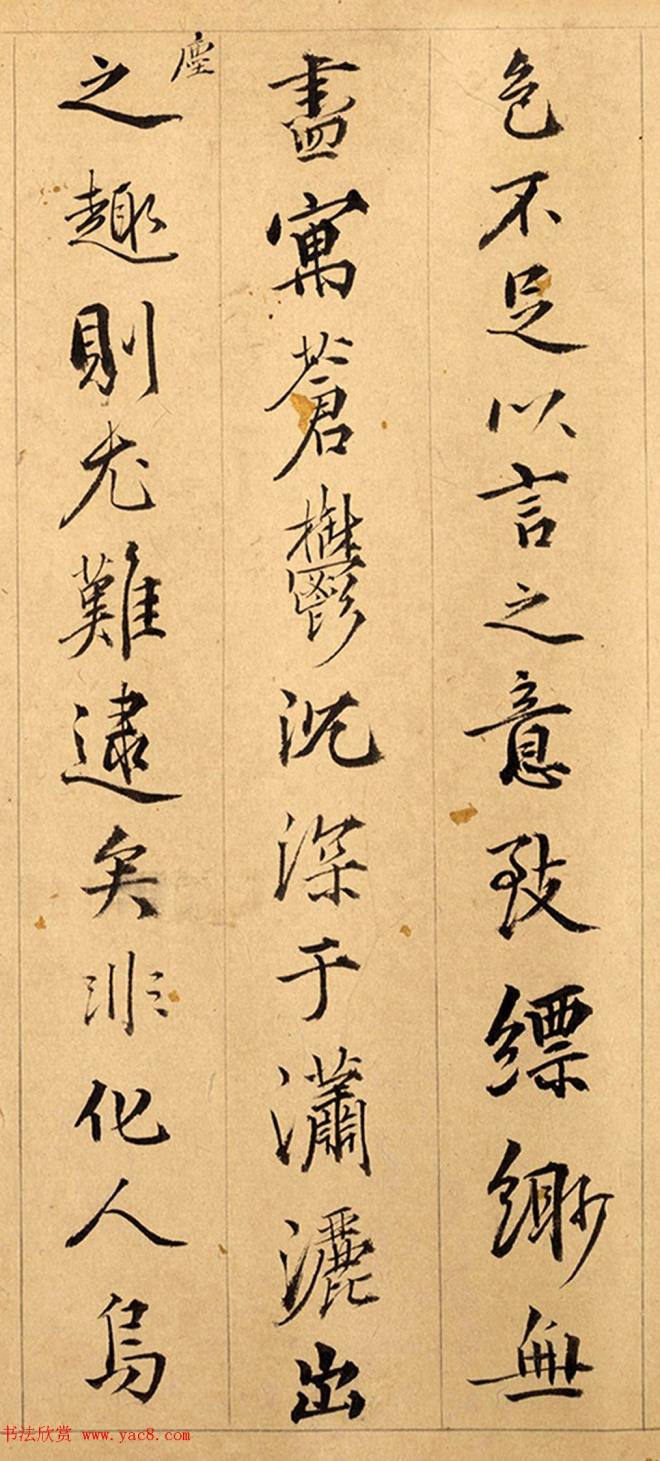 色不足以言之意致縹緲無
盡寓蒼鬱沉深于瀟灑出
塵
之趣則尤難逮矣非化人烏
书法欣赏 www.yac8.com